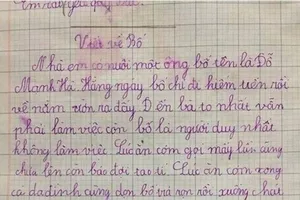 Viết về Bố
Nhà em có nuôi một ông bố tên là Đỗ
Mạnh Hà. Hằng ngày bố chỉ đi kiếm uốn rồi
về nằm ườn ra đấy. Đến bà to nhất vẫn
phải làm việc còn bố là người duy nhất
không làm việc. Lúc ăn cơm gọi mấy lần cũng
chưa lên còn bảo đợi tao tí. Lúc ăn cơm xong
cả gia đình cùng dọn bố vừa rọn rồi xuống